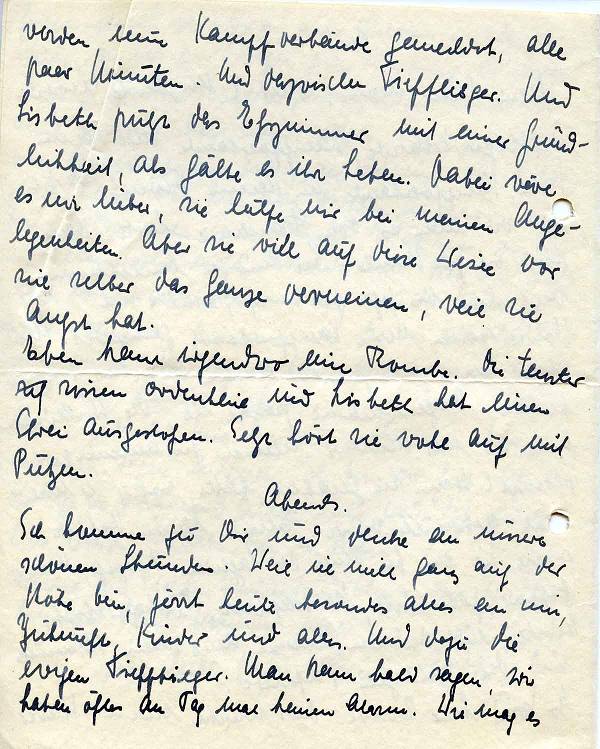 werden nun Kampfverbände gemeldet, alle
paar Minuten. Und dazwischen Tiefflieger. Und
Lisbeth putzt das Esszimmer mit einer Gründ-
lichkeit, als gälte es ihr Leben. Dabei wäre
es mir lieber, sie hülfe mir bei meinen Ange-
legenheiten. Aber sie will auf diese Weise vor
sie selber das Ganze verneinen, weil sie
Angst hat.
Eben kam irgendwo eine Bombe. Die Fenster
rissen ordentlich und Lisbeth hat einen
Schrei ausgestossen. Jetzt hört sie wohl auf mit
Putzen.
Abends.
Ich komme zu Dir und denke an unsere
schönen Stunden. Weil ich nicht ganz auf der
Höhe bin, zerrt heute besonders alles an mir,
Zukunft, Kinder und alles. Und dazu die
ewigen Tiefflieger. Man kann bald sagen, wir
haben öfter am Tag mal keinen Alarm. Wie mag es